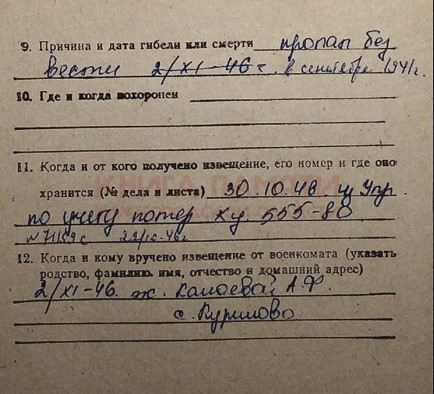 9. Причина и дата гибели или смерти пропал без
вести 2/XI-46 г. в сентябре 1941г.
10. Где и когда похоронен
11. Когда и от кого получено извещение, его номер и где оно
хранится (№ дела и листа) 30.10.46 Упр.
по учету потер 555-80
22/10-46г
12. Когда и кому вручено извещение от военкомата (указать
родство, фамилию, имя, отчество и домашний адрес)
2/XI-46. ж. А.Ф.
с. Курилово